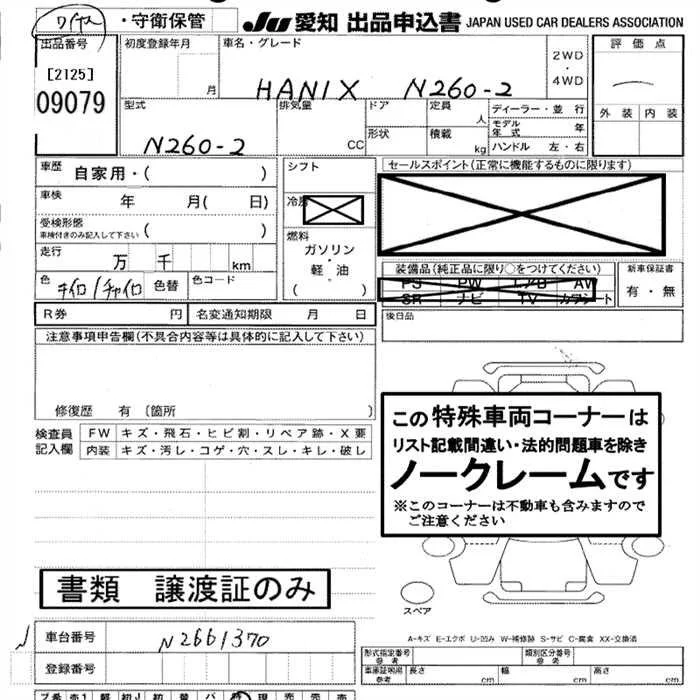 ワイヤス ・守衛保管 JU 愛知 出品申込書 JAPAN USED CAR DEALERS ASSOCIATION
出品番号 初度登録年月 月 車名・グレード 2WD・4WD 評価点
[2125]
09079
HANIX N260-2
外装 内装
型式 排気量 CC ドア 定員 人 ディーラー・並行
形状 積載 kg モデル年式 年
N260-2
ハンドル 左・右
車歴 自家用・( )
シフト
セールスポイント(正常に機能するものに限ります)
車検 年 月( 日)
受検形態 車検付きのみ記入して下さい ( )
燃料
ガソリン・軽油
( )
走行 万 千 km
装備品(純正品に限り○をつけてください) 新車保証書
PS PW エアB AW
SR ナビ TV カワシート
有・無
色 キイロ/チャイロ 色替 色コード
R券 円 名変通知期限 月 日
後日品
注意事項申告欄(不具合内容等は具体的に記入して下さい)
修復歴 有 〔箇所 〕
検査員記入欄
FW キズ・飛石・ヒビ割・リペア跡・X要
内装 キズ・汚レ・コゲ・穴・スレ・キレ・破レ
この特殊車両コーナーは
リスト記載間違い・法的問題車を除き
ノークレームです
※このコーナーは不動車も含みますので
ご注意ください
書類 譲渡証のみ
スペア
A-キズ E-エクボ U-凹み W-補修跡 S-サビ C-腐食 XX-交換済
車台番号 N2661370
登録番号
形式指定番号 参考 類別区分番号 参考
車庫証明用 参考 長さ cm 幅 cm 高さ cm